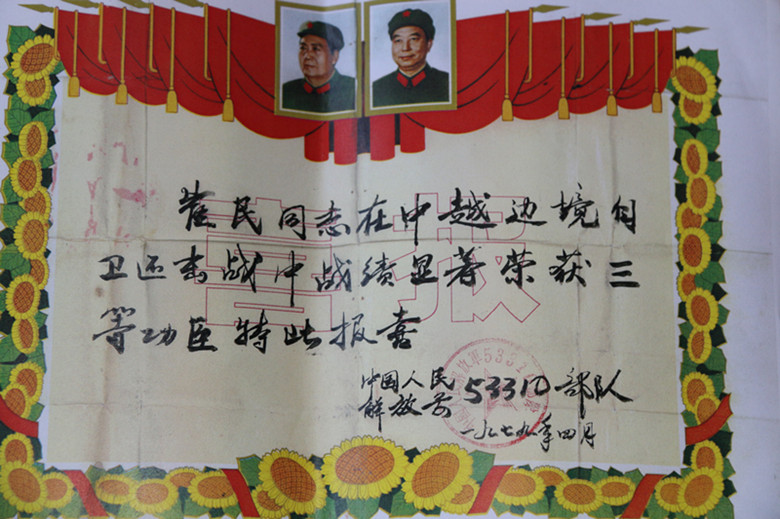 喜报
崔民同志在中越边境自
卫还击战中战绩显著荣获三
等功臣特此报喜
中国人民
解放军 53310部队
一九七九年四月